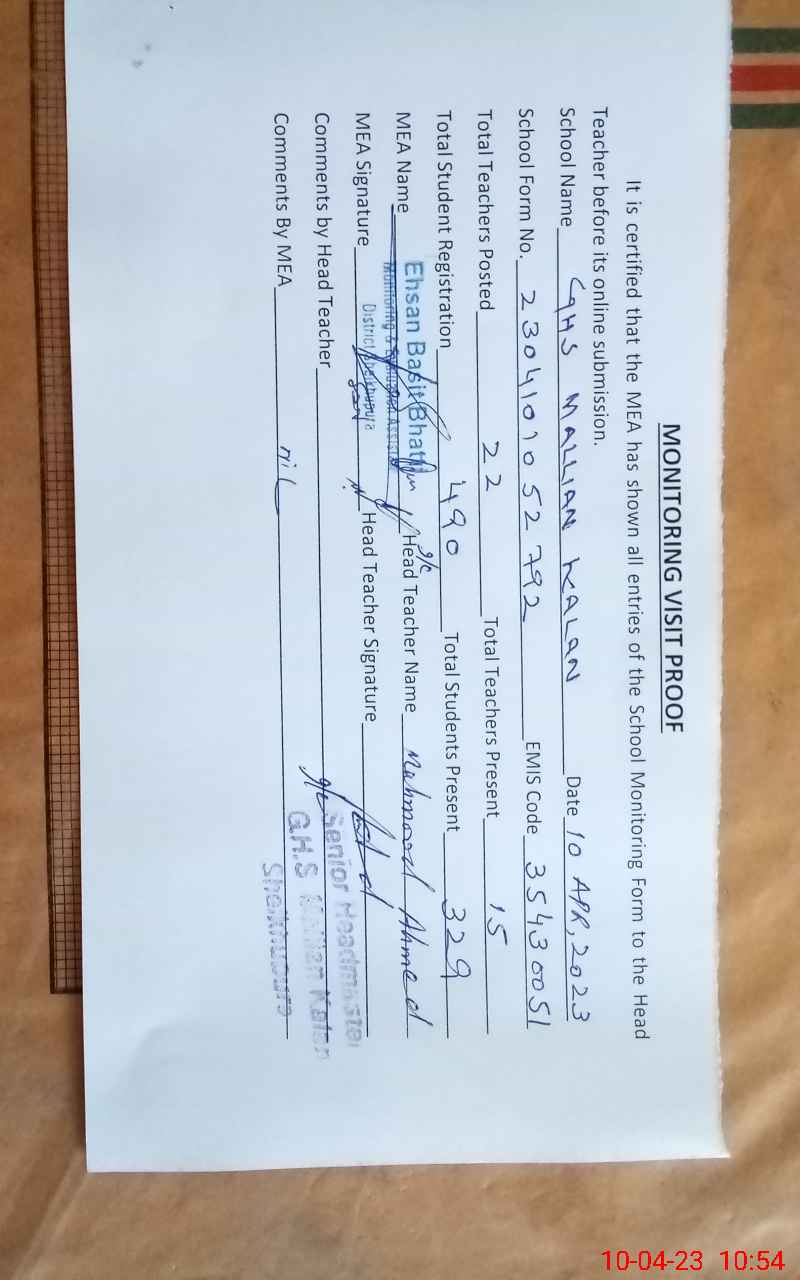 MONITORING VISIT PROOF
It is certified that the MEA has shown all entries of the School Monitoring Form to the Head
Teacher before its online submission.
School Name GHS MALLIAN KALAN Date 10 APR, 2023
School Form No. 23041010 52 792 EMIS Code 35430051
Total Teachers Posted 22 Total Teachers Present 15
Total Student Registration 490 Total Students Present 329
MEA Name Ehsan Basit Bhatti Head Teacher Name Mahmood Ahmed
Monitoring & Evaluation Assistant
District Sheikhupura
MEA Signature Head Teacher Signature
Comments by Head Teacher
Senior Headmaster
G.H.S Mallian Kalan
Sheikhupura
Comments By MEA nil
10-04-23 10:54